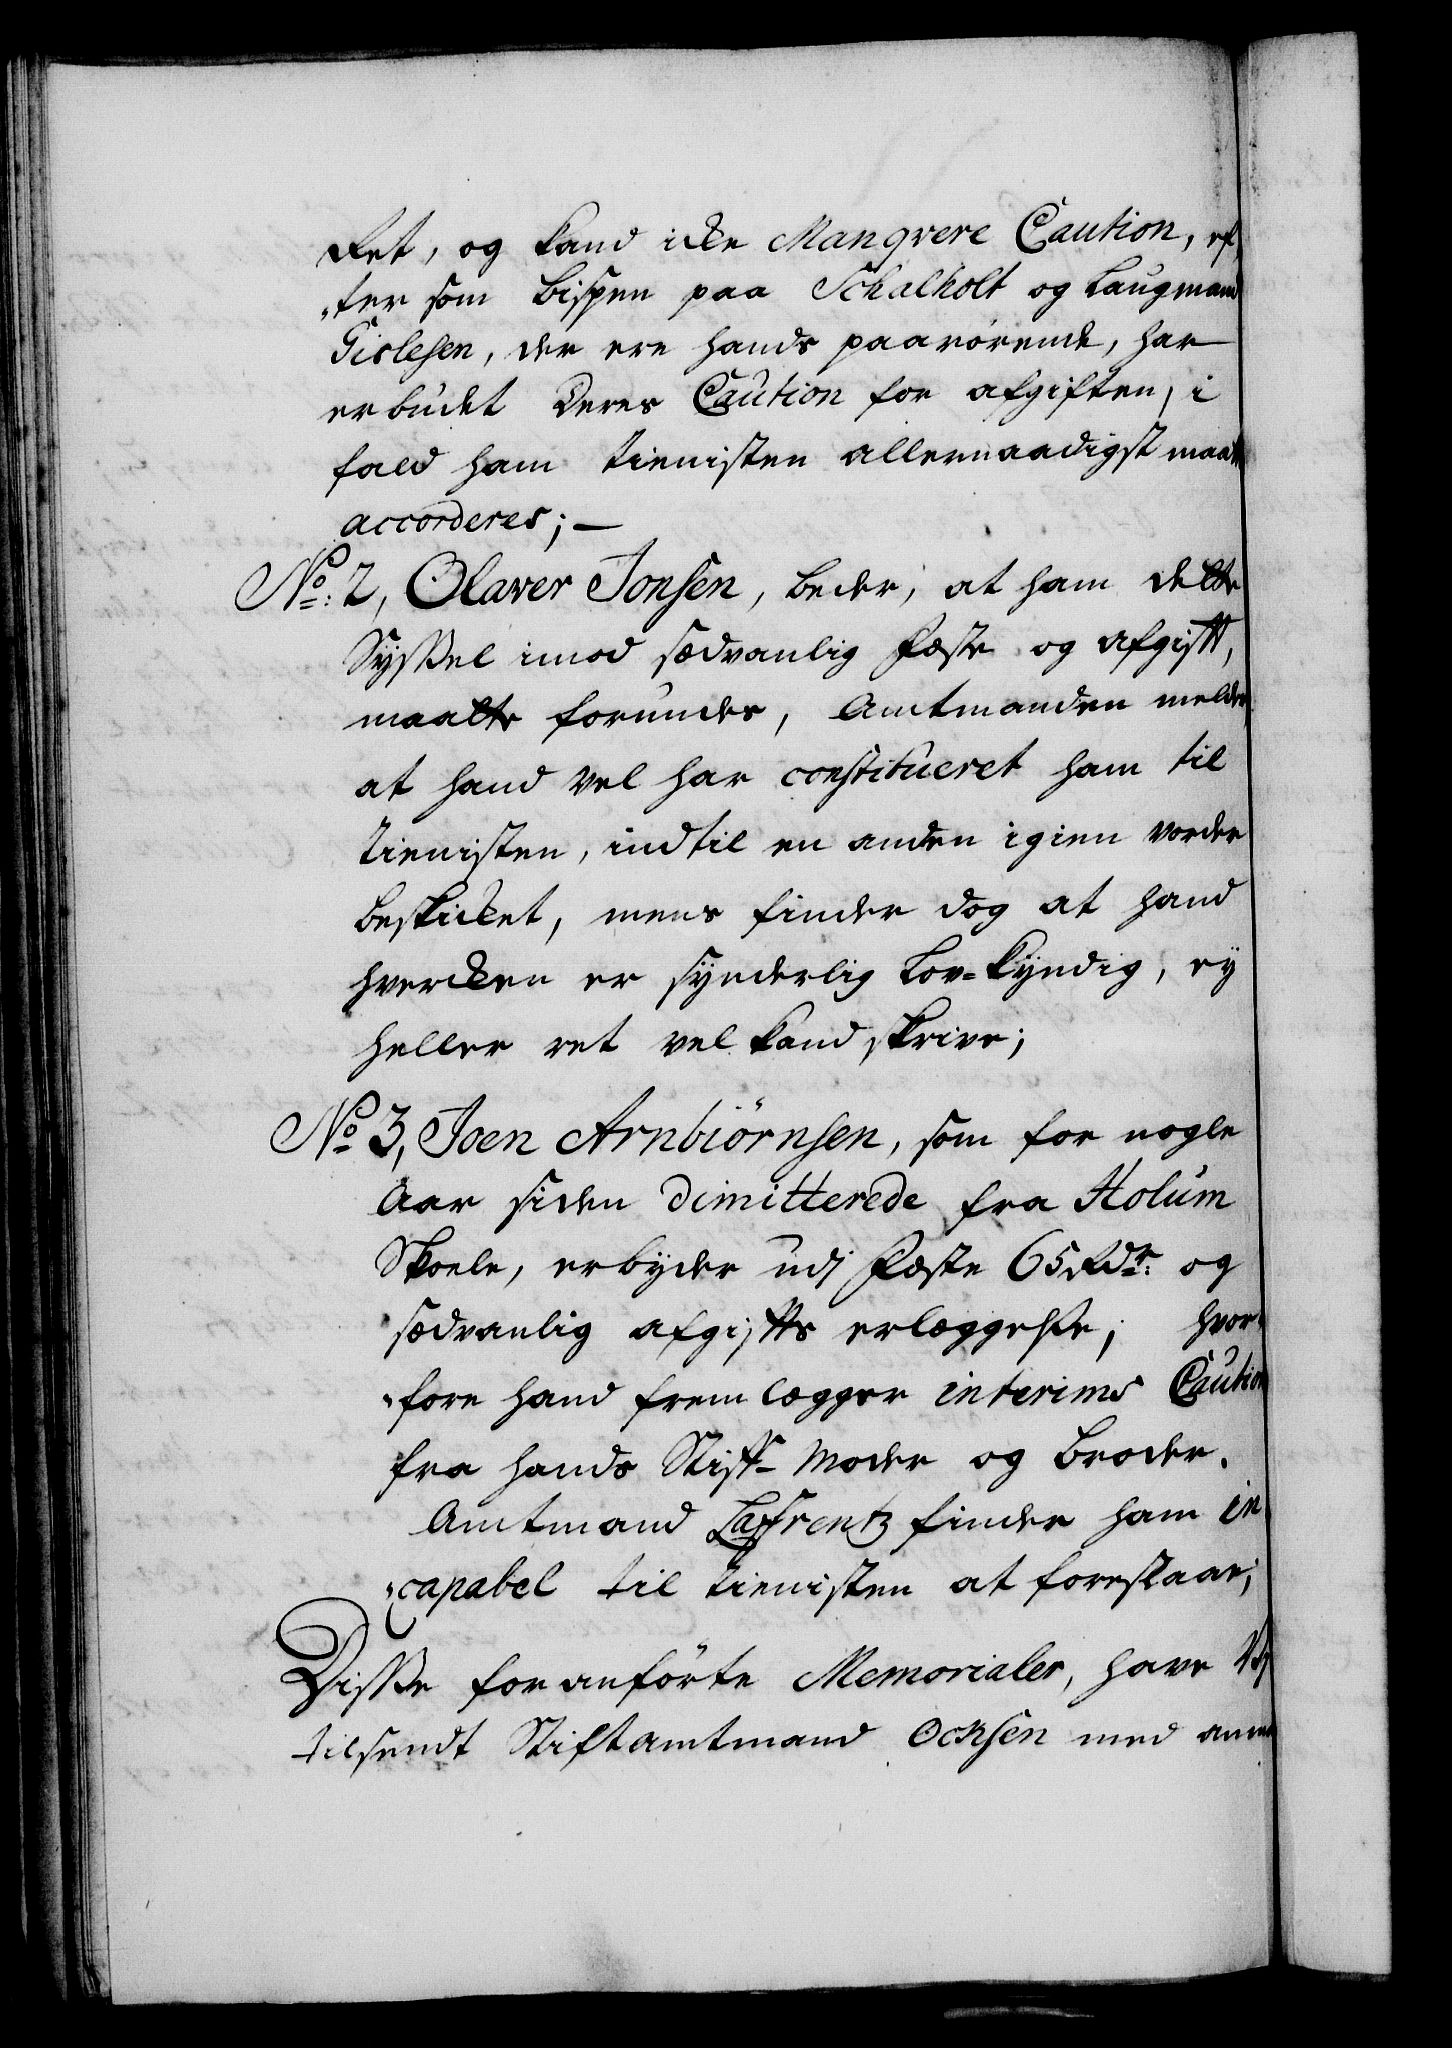 Ret, og kand icke Manqvere Caution, ef,,
,,ter som Bispen paa Schalholt og Laugmand
Gislesen, der ere hands paarörende, har
erbudet Deres Caution for afgiften, i
fald ham tienisten allernaadigst maatte
accorderes; —
No: 2, Olaver Jonsen, beder, at ham dette
Syssel imod sædvanlig Fæste og afgift,
maatte forundes, Amtmanden melder
at hand vel har constitueret ham til
tienisten, indtil en anden igien vorder
beskicket, mens finder dog at hand
hvercken er synderlig Lov-kyndig, ey
heller ret vel kand skrive;
No 3, Joen Arnbiörnsen, som for nogle
Aar siden dimitterede fra Holum
Skoele, erbyder udj Fæste 65 Rdr: og
sædvanlig afgifts erlæggelse, hvor,,
,,fore hand fremlægger interims Caution
fra hands Stiff-Moder og Broder.
Amtmand Laffrentz finder ham in,,
,,capabel til tienisten at forestaae;
Disse foranförte Memorialer, have Vj
tilsendt Stiftamtmand Ocksen med anmo